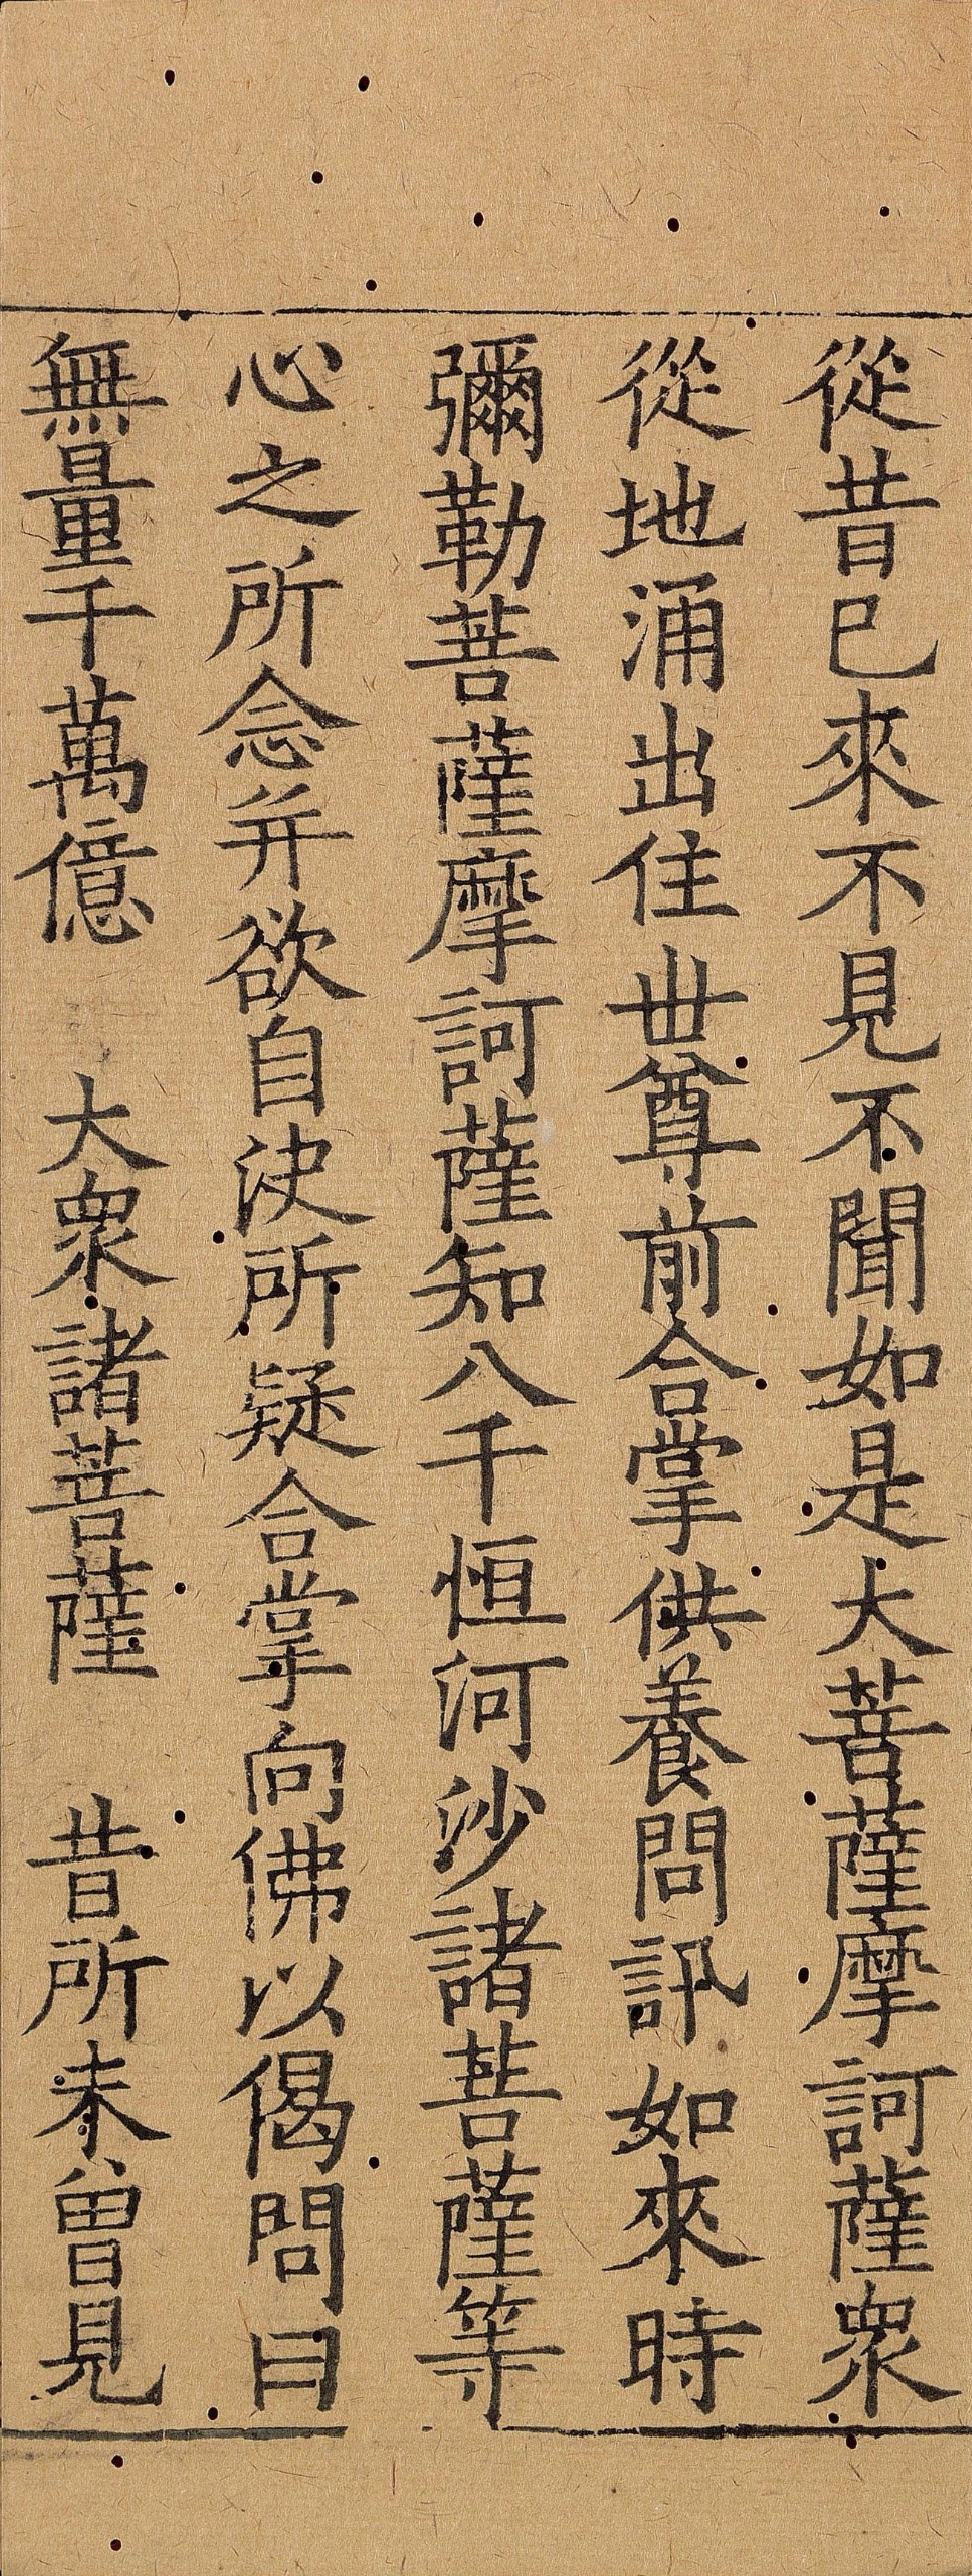 從昔已來不見不聞如是大菩薩摩訶薩衆
從地涌出住世尊前合掌供養問訊如來時
彌勒菩薩摩訶薩知八千恒河沙諸菩薩等
心之所念并欲自決所疑合掌向佛以偈問曰
無量千萬億　大衆諸菩薩　昔所未曾見